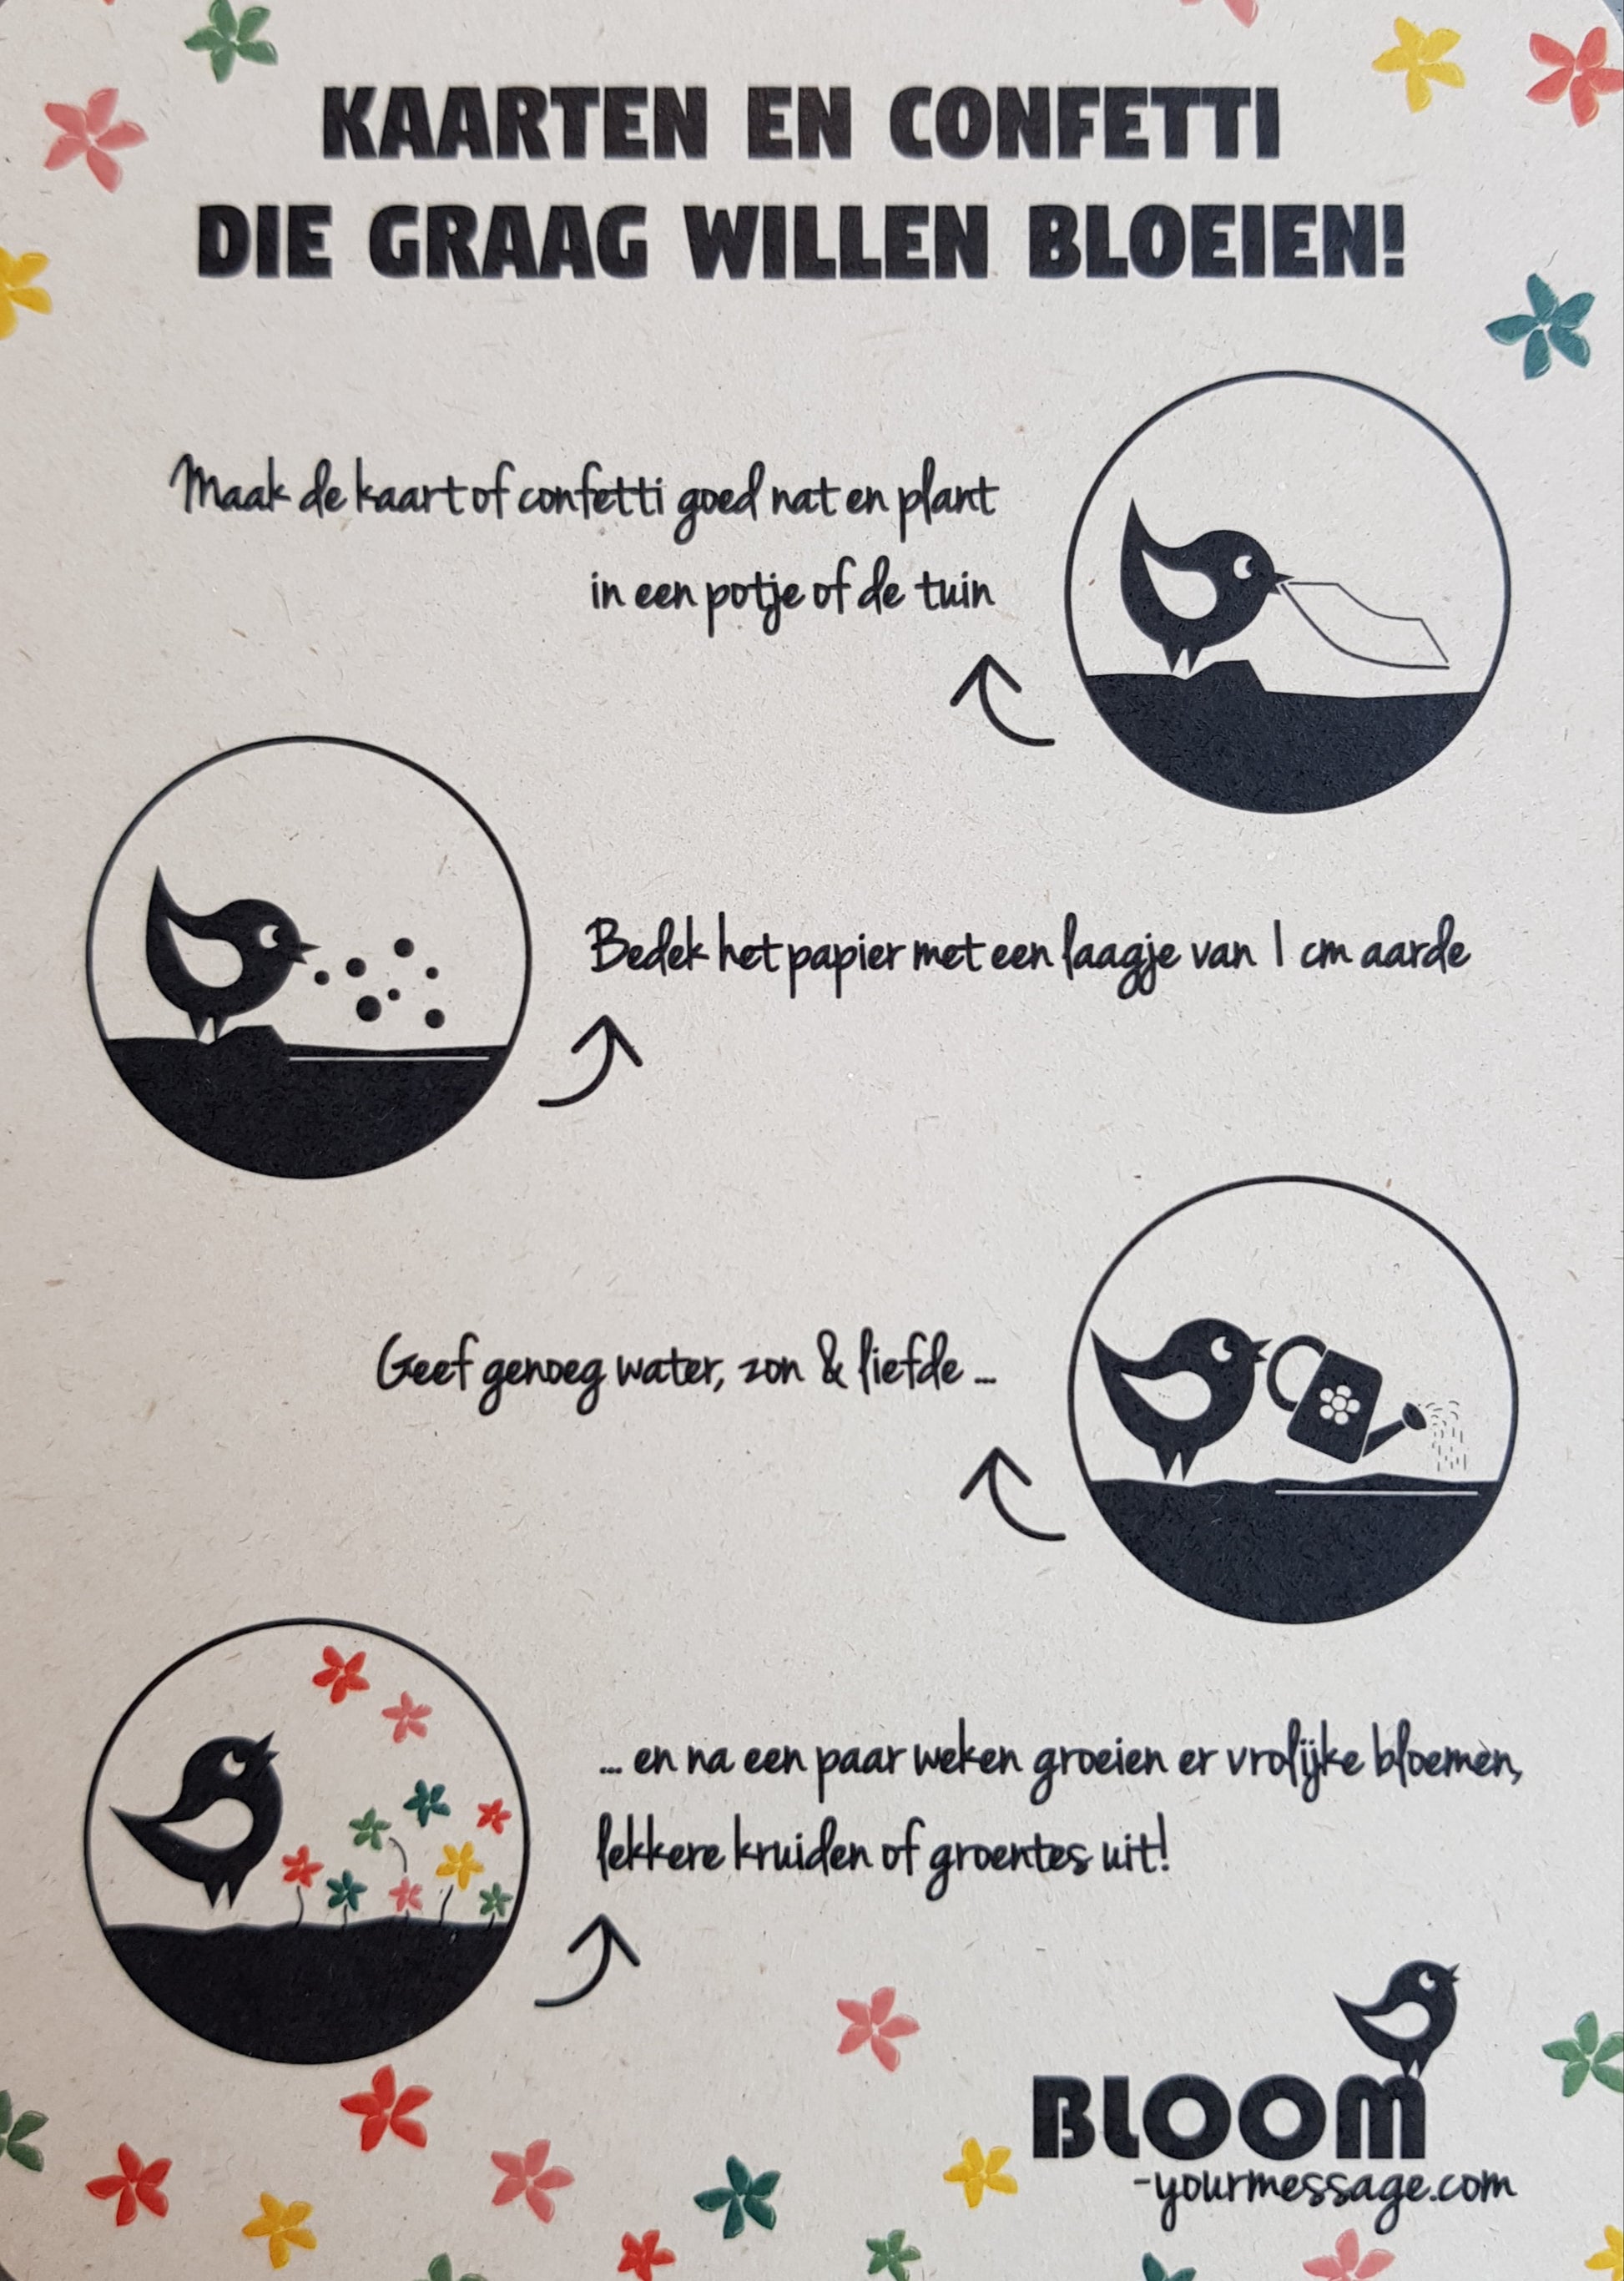 KAARTEN EN CONFETTI
DIE GRAAG WILLEN BLOEIEN!
Maak de kaart of confetti goed nat en plant
in een potje of de tuin
Bedek het papier met een laagje van 1 cm aarde
Geef genoeg water, zon & liefde ...
... en na een paar weken groeien er vrolijke bloemen,
lekkere kruiden of groentes uit!
BLOOM
-yourmessage.com